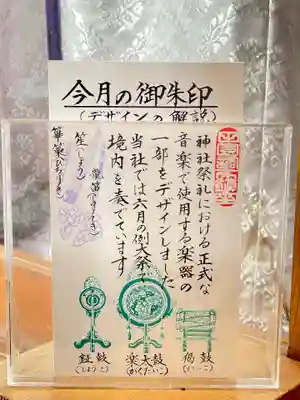 今月の御朱印
(デザインの解説)
神社祭礼における正式な
音楽で使用する楽器の
一部をデザインしました
当社では六月の例大祭で
境内を奏でています
笙(しょう)
篳篥(ひちりき)
鉦鼓
(しょうこ)
楽太鼓
(がくだいこ)
鞨鼓
(かっこ)